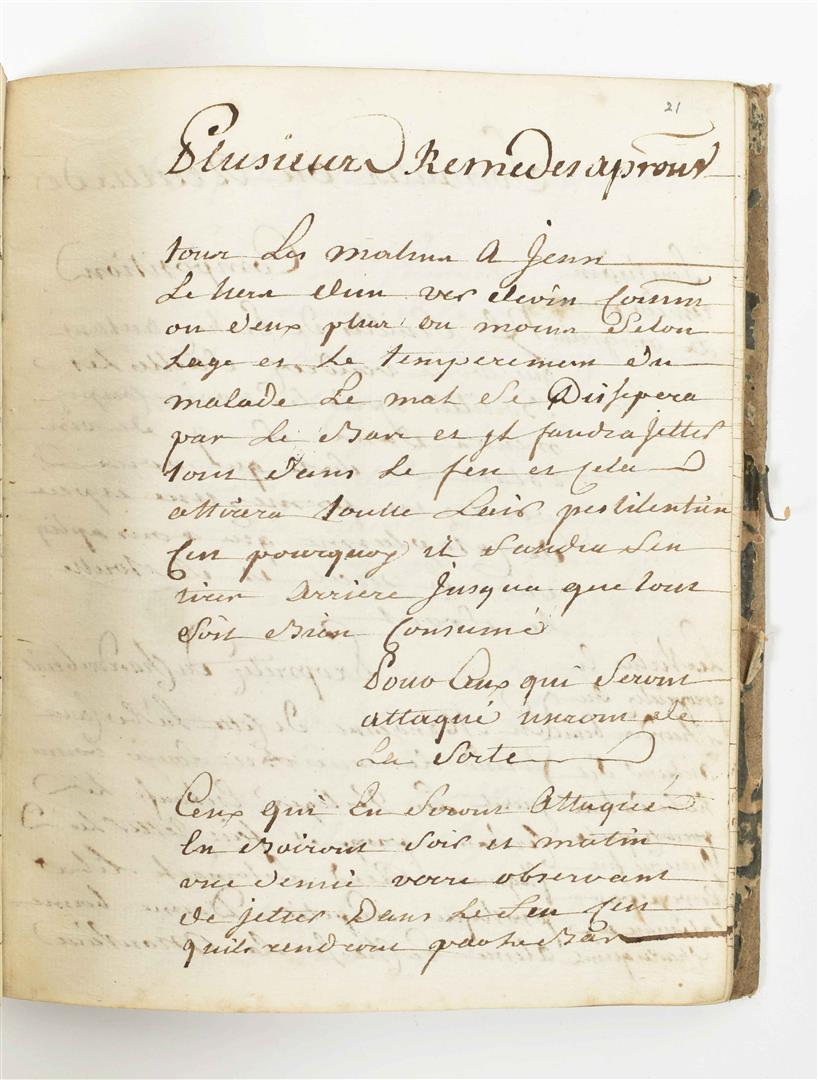 21
Plusieurs Remedes aprouv
tour Les matins A Jeun
Le tiers d'un ver devin Comm
ou deux plus ou moins Selon
Lage et Le temperement du
malade Le mal se Dissipera
par Le Bas et jl faudra Jetter
tout dans Le feu et Cela
attirera toutte Lair pestilentiu
Cest pourquoy il faudra Sen
tirer Arriere Jusqua que tout
Soit Bien Consumé
Pour Ceux qui Seront
attaqué useront de
La Sorte
Ceux qui En Seront Attaqués
En Boiront Soir et matin
une demie verre observant
de jetter Dans Le feu Cen
quils rendront par Le Bas